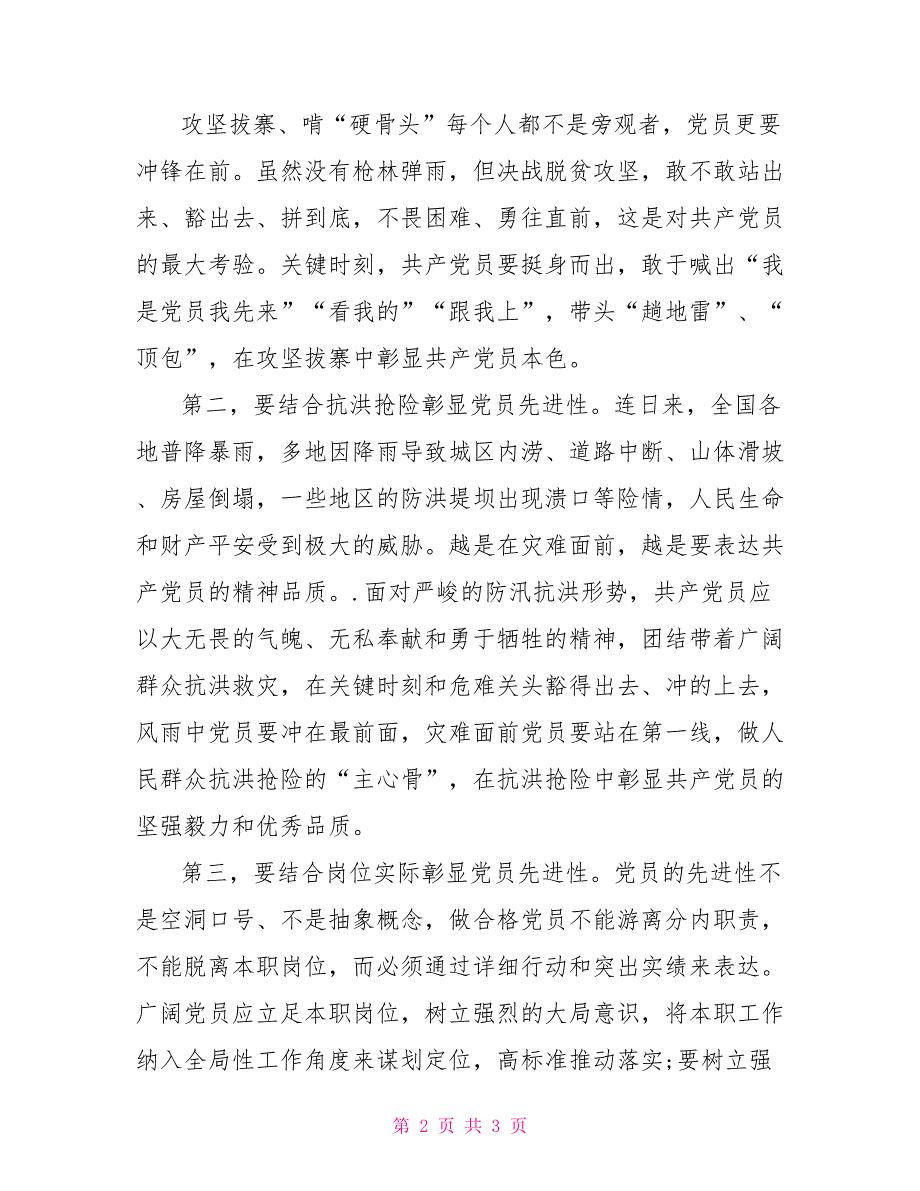 攻坚拔寨、啃“硬骨头”每个人都不是旁观者，党员更要
冲锋在前。虽然没有枪林弹雨，但决战脱贫攻坚，敢不敢站出
来、豁出去、拼到底，不畏困难、勇往直前，这是对共产党员
的最大考验。关键时刻，共产党员要挺身而出，敢于喊出“我
是党员我先来”“看我的”“跟我上”，带头“趟地雷”、“
顶包”，在攻坚拔寨中彰显共产党员本色。
第二，要结合抗洪抢险彰显党员先进性。连日来，全国各
地普降暴雨，多地因降雨导致城区内涝、道路中断、山体滑坡
、房屋倒塌，一些地区的防洪堤坝出现溃口等险情，人民生命
和财产平安受到极大的威胁。越是在灾难面前，越是要表达共
产党员的精神品质。.面对严峻的防汛抗洪形势，共产党员应
以大无畏的气魄、无私奉献和勇于牺牲的精神，团结带着广阔
群众抗洪救灾，在关键时刻和危难关头豁得出去、冲的上去，
风雨中党员要冲在最前面，灾难面前党员要站在第一线，做人
民群众抗洪抢险的“主心骨”，在抗洪抢险中彰显共产党员的
坚强毅力和优秀品质。
第三，要结合岗位实际彰显党员先进性。党员的先进性不
是空洞口号、不是抽象概念，做合格党员不能游离分内职责，
不能脱离本职岗位，而必须通过详细行动和突出实绩来表达。
广阔党员应立足本职岗位，树立强烈的大局意识，将本职工作
纳入全局性工作角度来谋划定位，高标准推动落实;要树立强
第 2 页 共 3 页